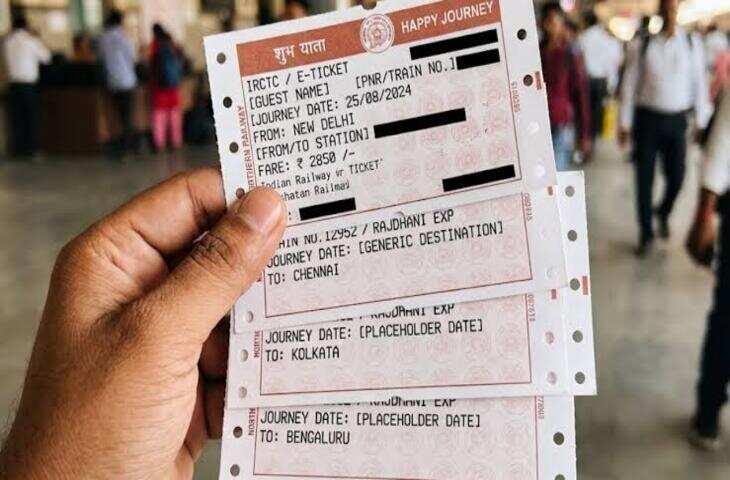 शुभ याता
HAPPY JOURNEY
IRCTC / E-TICKET
[GUEST NAME] [PNR/TRAIN NO.]
[JOURNEY DATE: 25/08/2024
FROM: NEW DELHI
[FROM/TO STATION]
FARE: ₹ 2850 /-
Indian Railway vr TICKET'
hatan Railmay
RTHERN RAILWAY
AIN NO.12952 / RAJDHANI EXP
JOURNEY DATE: [GENERIC DESTINATION]
TO: CHENNAI
JOURNEY DATE: [PLACEHOLDER DATE]
TO: KOLKATA
JOURNEY DATE: [PLACEHOLDER DATE]
TO: BENGALURU